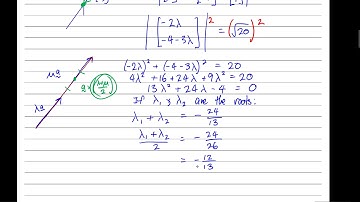 | [-2λ -4-3λ] |² = (√20)²
(-2λ)² + (-4-3λ)² = 20
4λ² + 16 + 24λ + 9λ² = 20
13λ² + 24λ - 4 = 0
If λ₁ & λ₂ are the roots:
λ₁ + λ₂ = - 24/13
(λ₁ + λ₂)/2 = - 24/26
= - 12/13